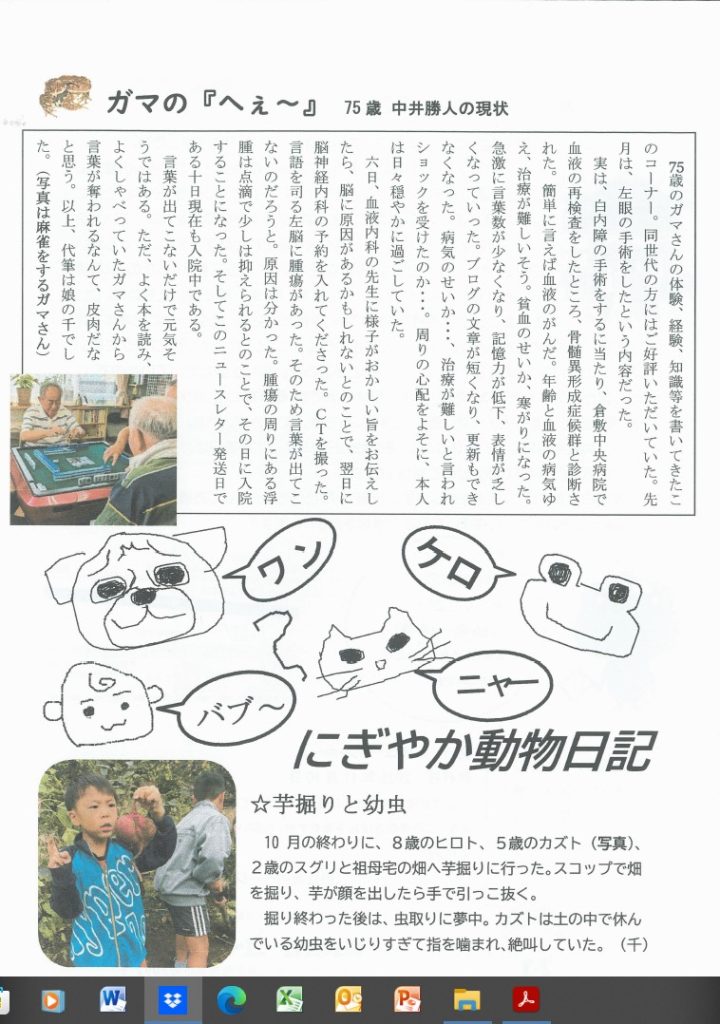 ガマの『へぇ～』 75歳 中井勝人の現状
75歳のガマさんの体験、経験、知識等を書いてきたこ
のコーナー。同世代の方にはご好評いただいていた。先
月は、左眼の手術をしたという内容だった。
実は、白内障の手術をするに当たり、倉敷中央病院で
血液の再検査をしたところ、骨髄異形成症候群と診断さ
れた。簡単に言えば血液のがんだ。年齢と血液の病気ゆ
え、治療が難しいそう。貧血のせいか、寒がりになった。
急激に言葉数が少なくなり、記憶力が低下、表情が乏し
くなっていった。ブログの文章が短くなり、更新もでき
なくなった。病気のせいか・・・、治療が難しいと言われ
ショックを受けたのか・・・。周りの心配をよそに、本人
は日々穏やかに過ごしていた。
六日、血液内科の先生に様子がおかしい旨をお伝えし
たら、脳に原因があるかもしれないとのことで、翌日に
脳神経内科の予約を入れてくださった。ＣＴを撮った。
言語を司る左脳に腫瘍があった。そのため言葉が出てこ
ないのだろうと。原因は分かった。腫瘍の周りにある浮
腫は点滴で少しは抑えられるとのことで、その日に入院
することになった。そしてこのニュースレター発送日で
ある十日現在も入院中である。
言葉が出てこないだけで元気そ
うではある。ただ、よく本を読み、
よくしゃべっていたガマさんから
言葉が奪われるなんて、皮肉だな
と思う。以上、代筆は娘の千でし
た。（写真は麻雀をするガマさん）
ワン
ケロ
ニャー
バブ～
にぎやか動物日記
☆芋掘りと幼虫
10月の終わりに、８歳のヒロト、５歳のカズト（写真）、
２歳のスグリと祖母宅の畑へ芋掘りに行った。スコップで畑
を掘り、芋が顔を出したら手で引っこ抜く。
掘り終わった後は、虫取りに夢中。カズトは土の中で休ん
でいる幼虫をいじりすぎて指を噛まれ、絶叫していた。（千）